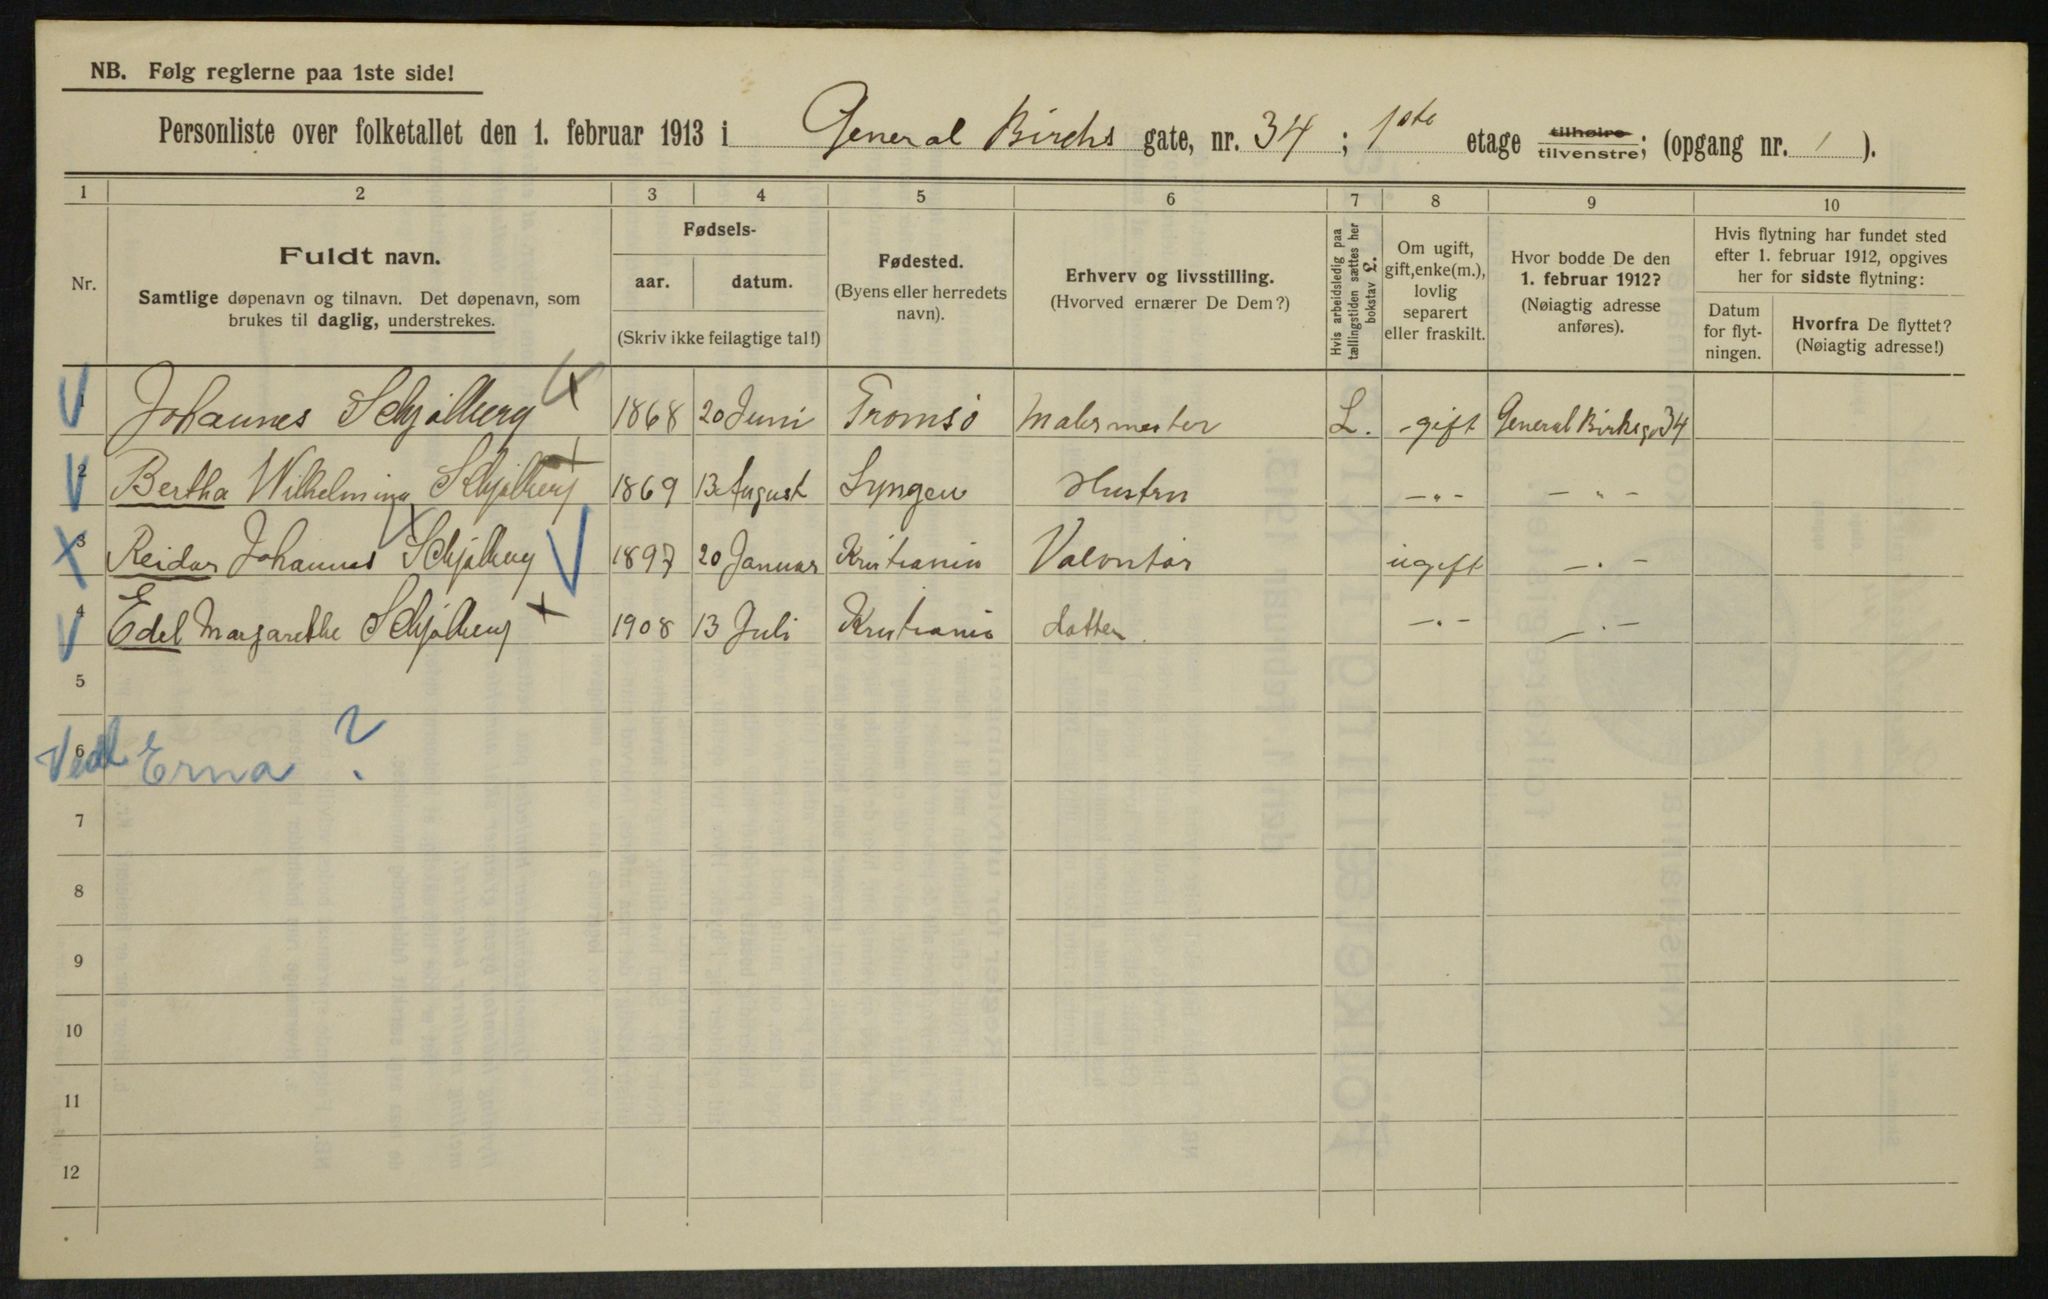 NB. Følg reglerne paa 1ste side!
Personliste over folketallet den 1. februar 1913 i General Birchs gate, nr. 34 ; 1ste etage tilhøire tilvenstre; (opgang nr. 1 ).
1 2 3 4 5 6 7 8 9 10
Nr.
Fuldt navn.
Samtlige døpenavn og tilnavn. Det døpenavn, som
brukes til daglig, understrekes.
Fødsels-
aar. datum.
(Skriv ikke feilagtige tal!)
Fødested.
(Byens eller herredets
navn).
Erhverv og livsstilling.
(Hvorved ernærer De Dem?)
Hvis arbeidsledig paa
tællingstiden sættes her
bokstav L.
Om ugift,
gift, enke(m.),
lovlig
separert
eller fraskilt.
Hvor bodde De den
1. februar 1912?
(Nøiagtig adresse
anføres).
Hvis flytning har fundet sted
efter 1. februar 1912, opgives
her for sidste flytning:
Datum
for flyt-
ningen.
Hvorfra De flyttet?
(Nøiagtig adresse!)
1 Johannes Schjølberg 1868 20 Juni Tromsö Malermester L. gift General Birksg. 34
2 Bertha Wilhelmina Schjølberg 1869 13 August Lyngen Hustru -"- -"-
3 Reidar Johannes Schjølberg 1897 20 Januar Kristiania Valontør ugift -"-
4 Edel Margarethe Schjølberg 1908 13 Juli Kristiania datter. -"- -"-
5
6 Erna ?
7
8
9
10
11
12